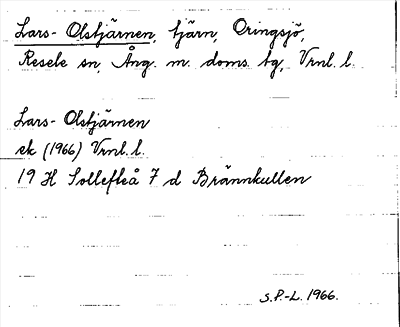 Lars-Olstjärnen, tjärn, Oringsjö,
Resele sn, Ång. m. doms. tg, Vrnl. l.
Lars-Olstjärnen
ek (1966) Vrnl. l.
19 H Sollefteå 7 d Brännkullen
S.P.-L. 1966.